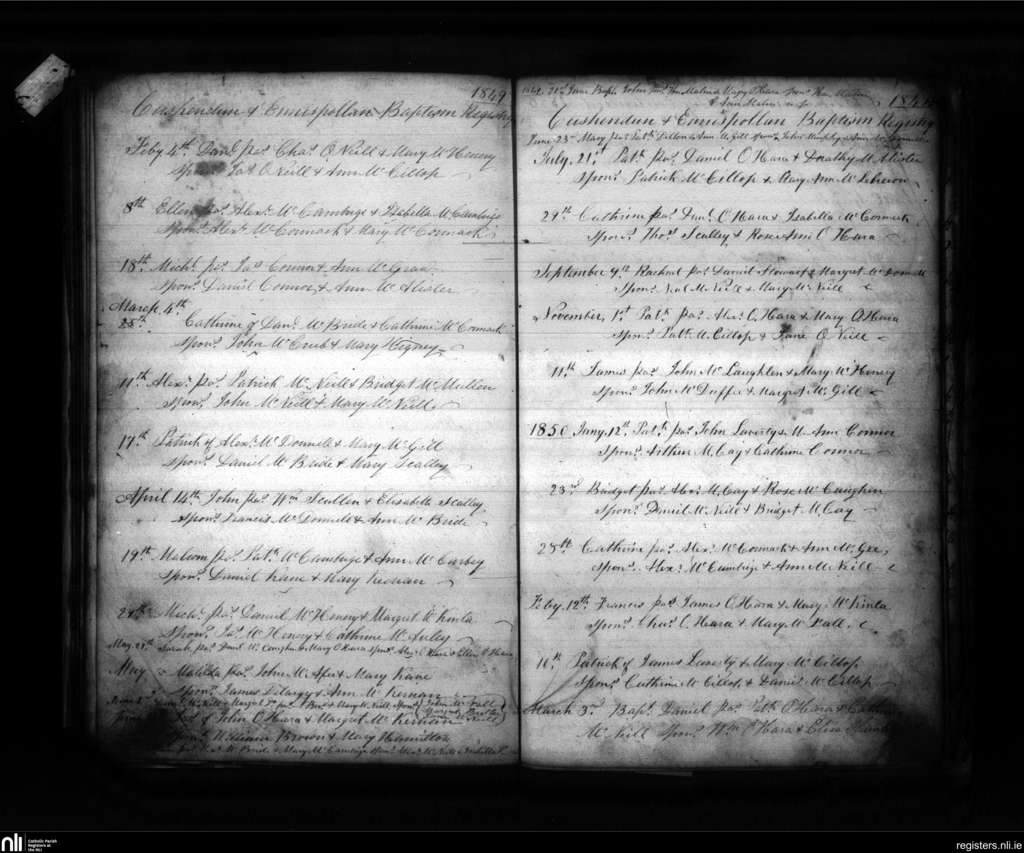 1849
Cushendun & Ennispollan Baptism Registry
Feby 4th Danl par Chas O Neill & Mary Mc Henry
Spon Jas O Neill & Ann Mc Cillop
8th Ellen par Alexr Mc Cambrige & Isabella Mc Cambrige
Spon Alexr Mc Cormack & Mary Mc Cormack
18th Michl par Jas Connor & Ann Mc Grau
Spon Daniel Connor & Ann Mc Alister
March 4th
25th Cathrine of Danl Mc Bride & Cathrine Mc Cormack
Spon John Mc & Mary
11th Alexr par Patrick Mc Neill & Bridget Mc Mullen
Spon John Mc Neill & Mary Mc Neill
17th Patrick of Alexr Mc Donnell & Mary Mc Gill
Spon Daniel Mc Bride & Mary Scalley
April 14th John par Wm Scullen & Elisabeth Scalley
Spon Francis Mc Donnell & Ann Mc Bride
19th Malcom par Patk Mc Cambrige & Ann Mc Carbey
Spon Daniel Kane & Mary
24th Michl par Daniel Mc Henry & Margret Mc Kinla
Spon Jas Mc Henry & Cathrine Mc Auley
May 21st Sarah par Danl Mc & Mary O Hara Spon Alexr O Hara & Ellen O Hara
May Matilda par John Mc & Mary Kane
Spon James Delargy & Ann Mc Kernan
June Mc Neill & Margret par & Mary Mc Neill Spon John Mc Fall
June Jas of John O Hara & Margret Mc Kernan
Spon William Brown & Mary Hamilton
par Mc Bride & Mary Mc Cambrige Spon Mc Neill
1849 21st June Bapt John par Wm & Mary O Hara Spon Wm
& Ann
184
Cushendun & Ennispollan Baptism Registry
June 23rd Mary par Patk Dillon & Ann Mc Gill Spon John Murphy & Ann
July 21st Patk par Daniel O Hara & Dorathy Mc Alister
Spon Patrick Mc Cillop & Mary Ann Mc
29th Cathrine par Danl O Hara & Isabella Mc Cormack
Spon Thos Scalley & Rose Ann O Hara
September 9th Racheal par Daniel Stewart & Margret Mc Donnell
Spon Neal Mc Neill & Mary Mc Neill
November 1st Patk par Alexr O Hara & Mary O Hara
Spon Patk Mc Cillop & Jane O Neill
11th James par John Mc Laughlen & Mary Mc Henry
Spon John Mc Duffee & Margret Mc Gill
1850 Jany 12th Patk par John Laverty & Ann Connor
Spon Arthur Mc Cay & Cathrine Connor
23rd Bridget par Alexr Mc Cay & Rose Mc Caughan
Spon Daniel Mc Neill & Bridget Mc Cay
25th Cathrine par Alexr Mc Cormack & Ann Mc Gee
Spon Alexr Mc Cambrige & Ann Mc Neill
Feby 12th Francis par James O Hara & Mary Mc Kinla
Spon Chas O Hara & Mary Mc Fall
16th Patrick of James Laverty & Mary Mc Cillop
Spon Cathrine Mc Cillop & Daniel Mc Cillop
March 3rd Bapt Daniel par Patk O Hara & Cath
Mc Neill Spon Wm O Hara & Eliza
nli
Catholic Parish
Registers at
the NLI
registers.nli.ie